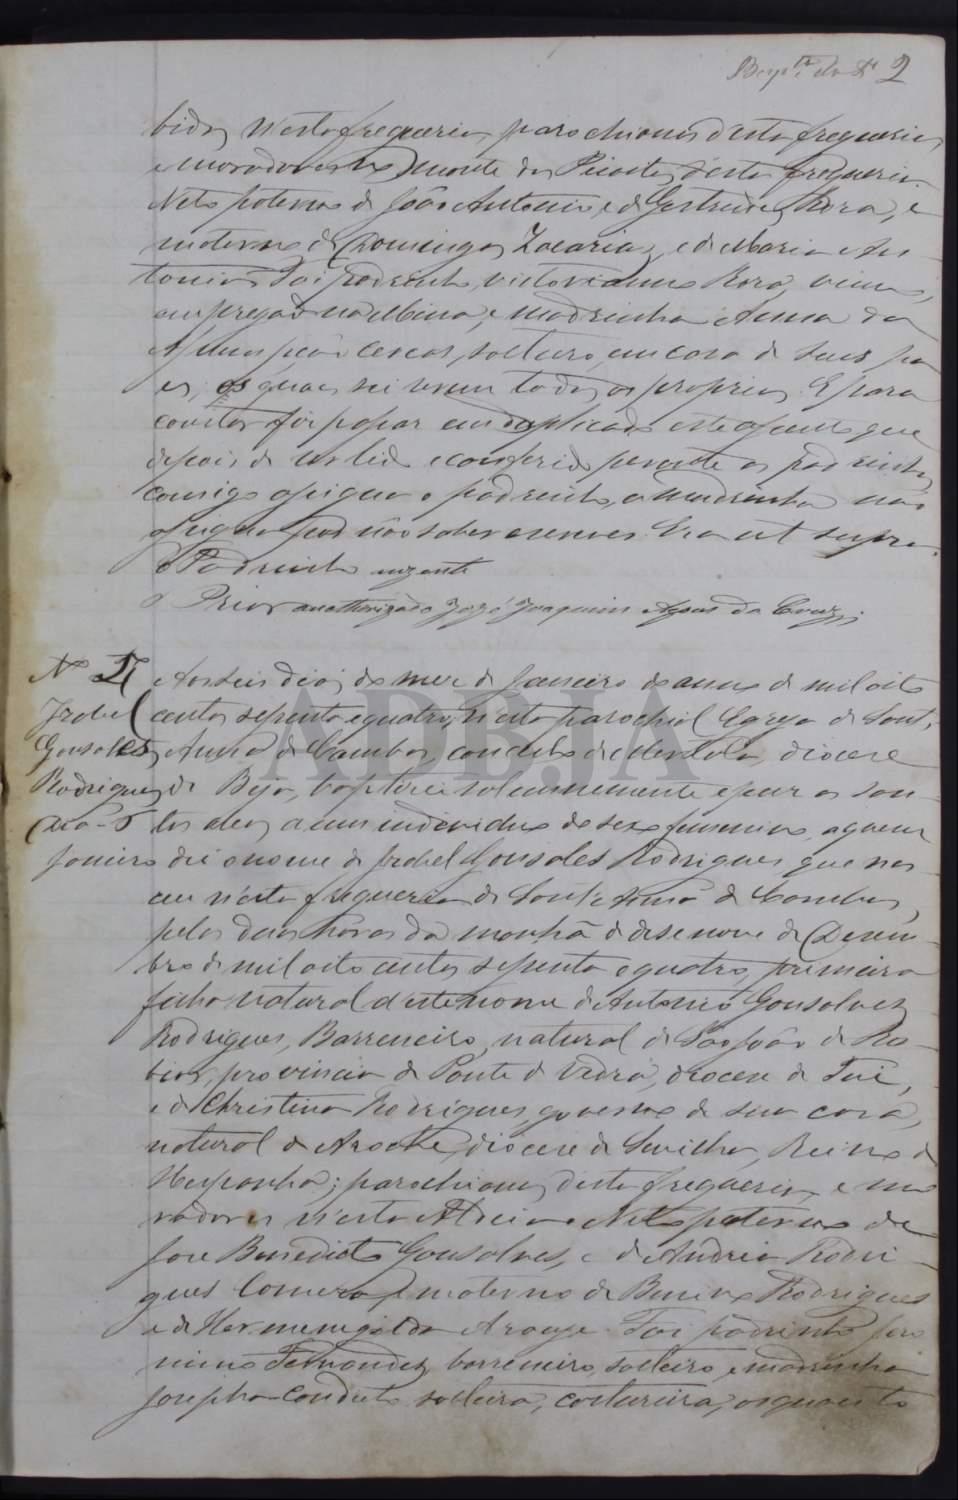 2
bidos n'esta freguesia, parochianos d'esta freguesia,
e moradores no Monte da d'esta freguesia.
Neto paterno de João Antonio, e de Gertrudes Rosa, e
materno de Domingos Zacarias, e de Maria An-
tonia. Foi Padrinho, Victorianno Rosa, viuvo,
empregado na Mina, e madrinha Anna da
solteira, em casa de seus pa
es, os quaes sei serem todos os proprios. E para
constar fiz passar em duplicado este assento que
depois de ser lido e conferido perante os padrinhos
comigo assigna o padrinho, a madrinha não
assigna por não saber escrever. Era ut supra.
O Padrinho
O Prior José Joaquim da Cruz
Nº 2
Izabel
Gonsales
Rodrigues
Janeiro
Aos seis dias do mez de Janeiro do anno de mil oito
centos sepenta e quatro, n'esta parochial Egreja de Sant'
Anna de Cambas, concelho de Mertola, diocese
de Beja, baptizei solemnemente e puz os san-
tos oleos a um individuo do sexo femenino, a quem
dei o nome de Izabel Gonsales Rodrigues que nas
ceu n'esta freguezia de Sant'Anna de Cambas,
pelas duas horas da manhã de desenove de Dezem-
bro de mil oito centos sepenta e quatro, primeira
filha natural d'este nome de Antonio Gonsalves
Rodrigues, Barreneiro, natural de São João de
provincia de Ponte de Vedra, diocese de Tui,
e de Christina Rodrigues, governo de sua casa,
natural de Aroche, diocese de Sevilha, Reino de
Hespanha; parochianos desta freguesia, e mo
radores n'esta Aldeia. Neta paterna de
José Benedicto Gonsalves, e de Andreia Rodri-
gues e materno de Rodrigues
e de Hermenegilda Araujo. Foi padrinho Jero
nimo Fernandes, barreneiro, solteiro, e madrinha
Josepha Conduto, solteira, costureira, os quaes to
ADBJA